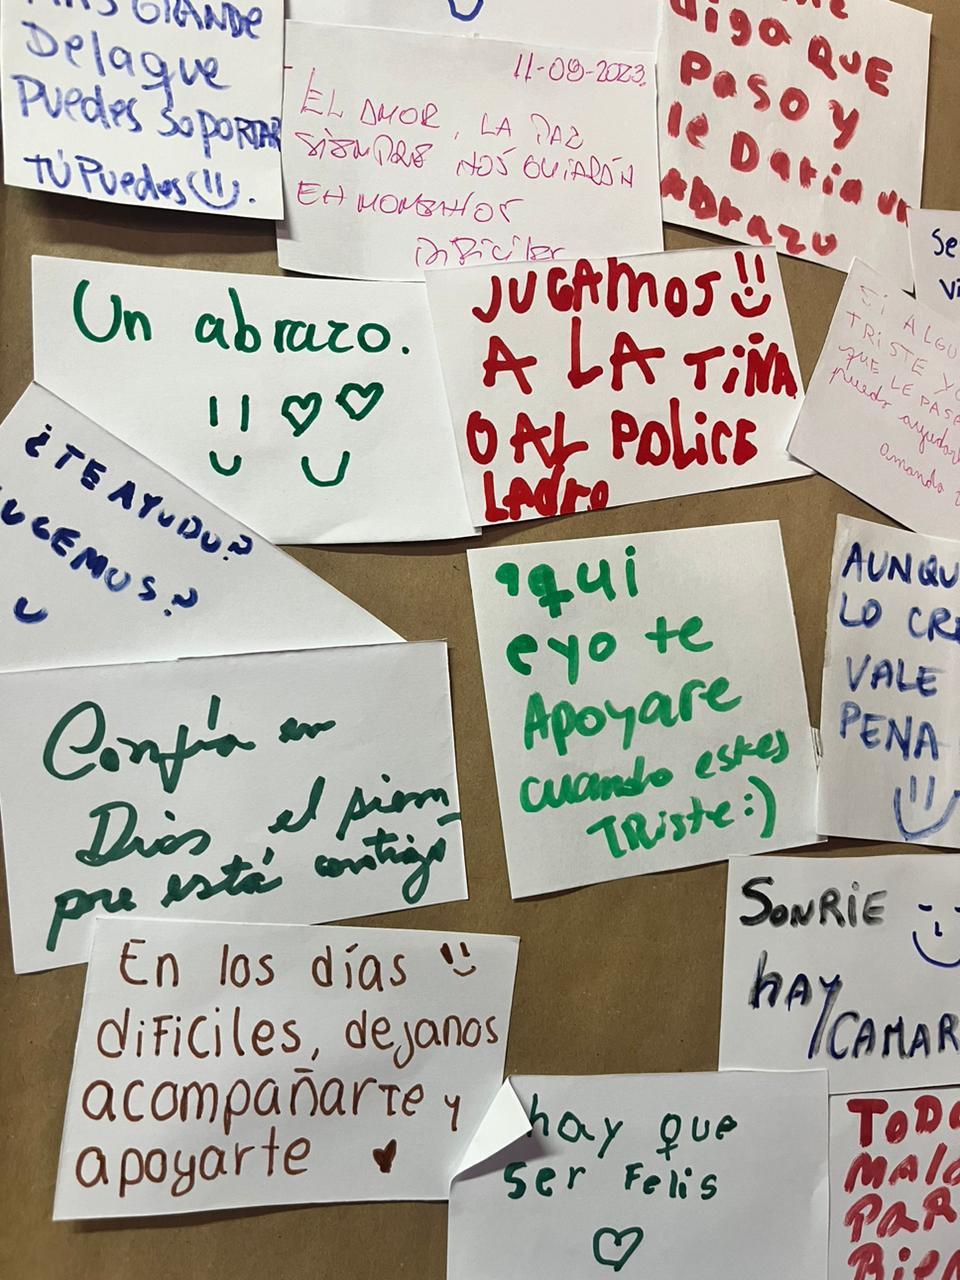 MAS GRANDE
Delaque
Puedes SOPORTAR
TÚ Puedes
11-09-2023
EL AMOR, LA PAZ
SIEMPRE NOS GUIARÁN
EN MOMENTOS
DIFICILES
diga QUE
PASO Y
le Daria un
ABrazo
Se
Vi
Un abrazo.
JUGAMOS
A LA TIÑA
O AL POLICE
LADRO
SI ALGU
TRISTE YO
QUE LE PASA
puedo ayudarl
amanda
¿TE AYUDO?
UGEMOS?
aqui
eyo te
Apoyare
cuando estes
TRiste :)
AUNQU
LO CRE
VALE
PENA
Confía en
Dios el siem-
pre está contigo
SONRIE
HAY
CAMAR
En los días
dificiles, dejanos
acompañarte y
apoyarte
hay que
ser Felis
TODO
MALO
PAR
BIEN